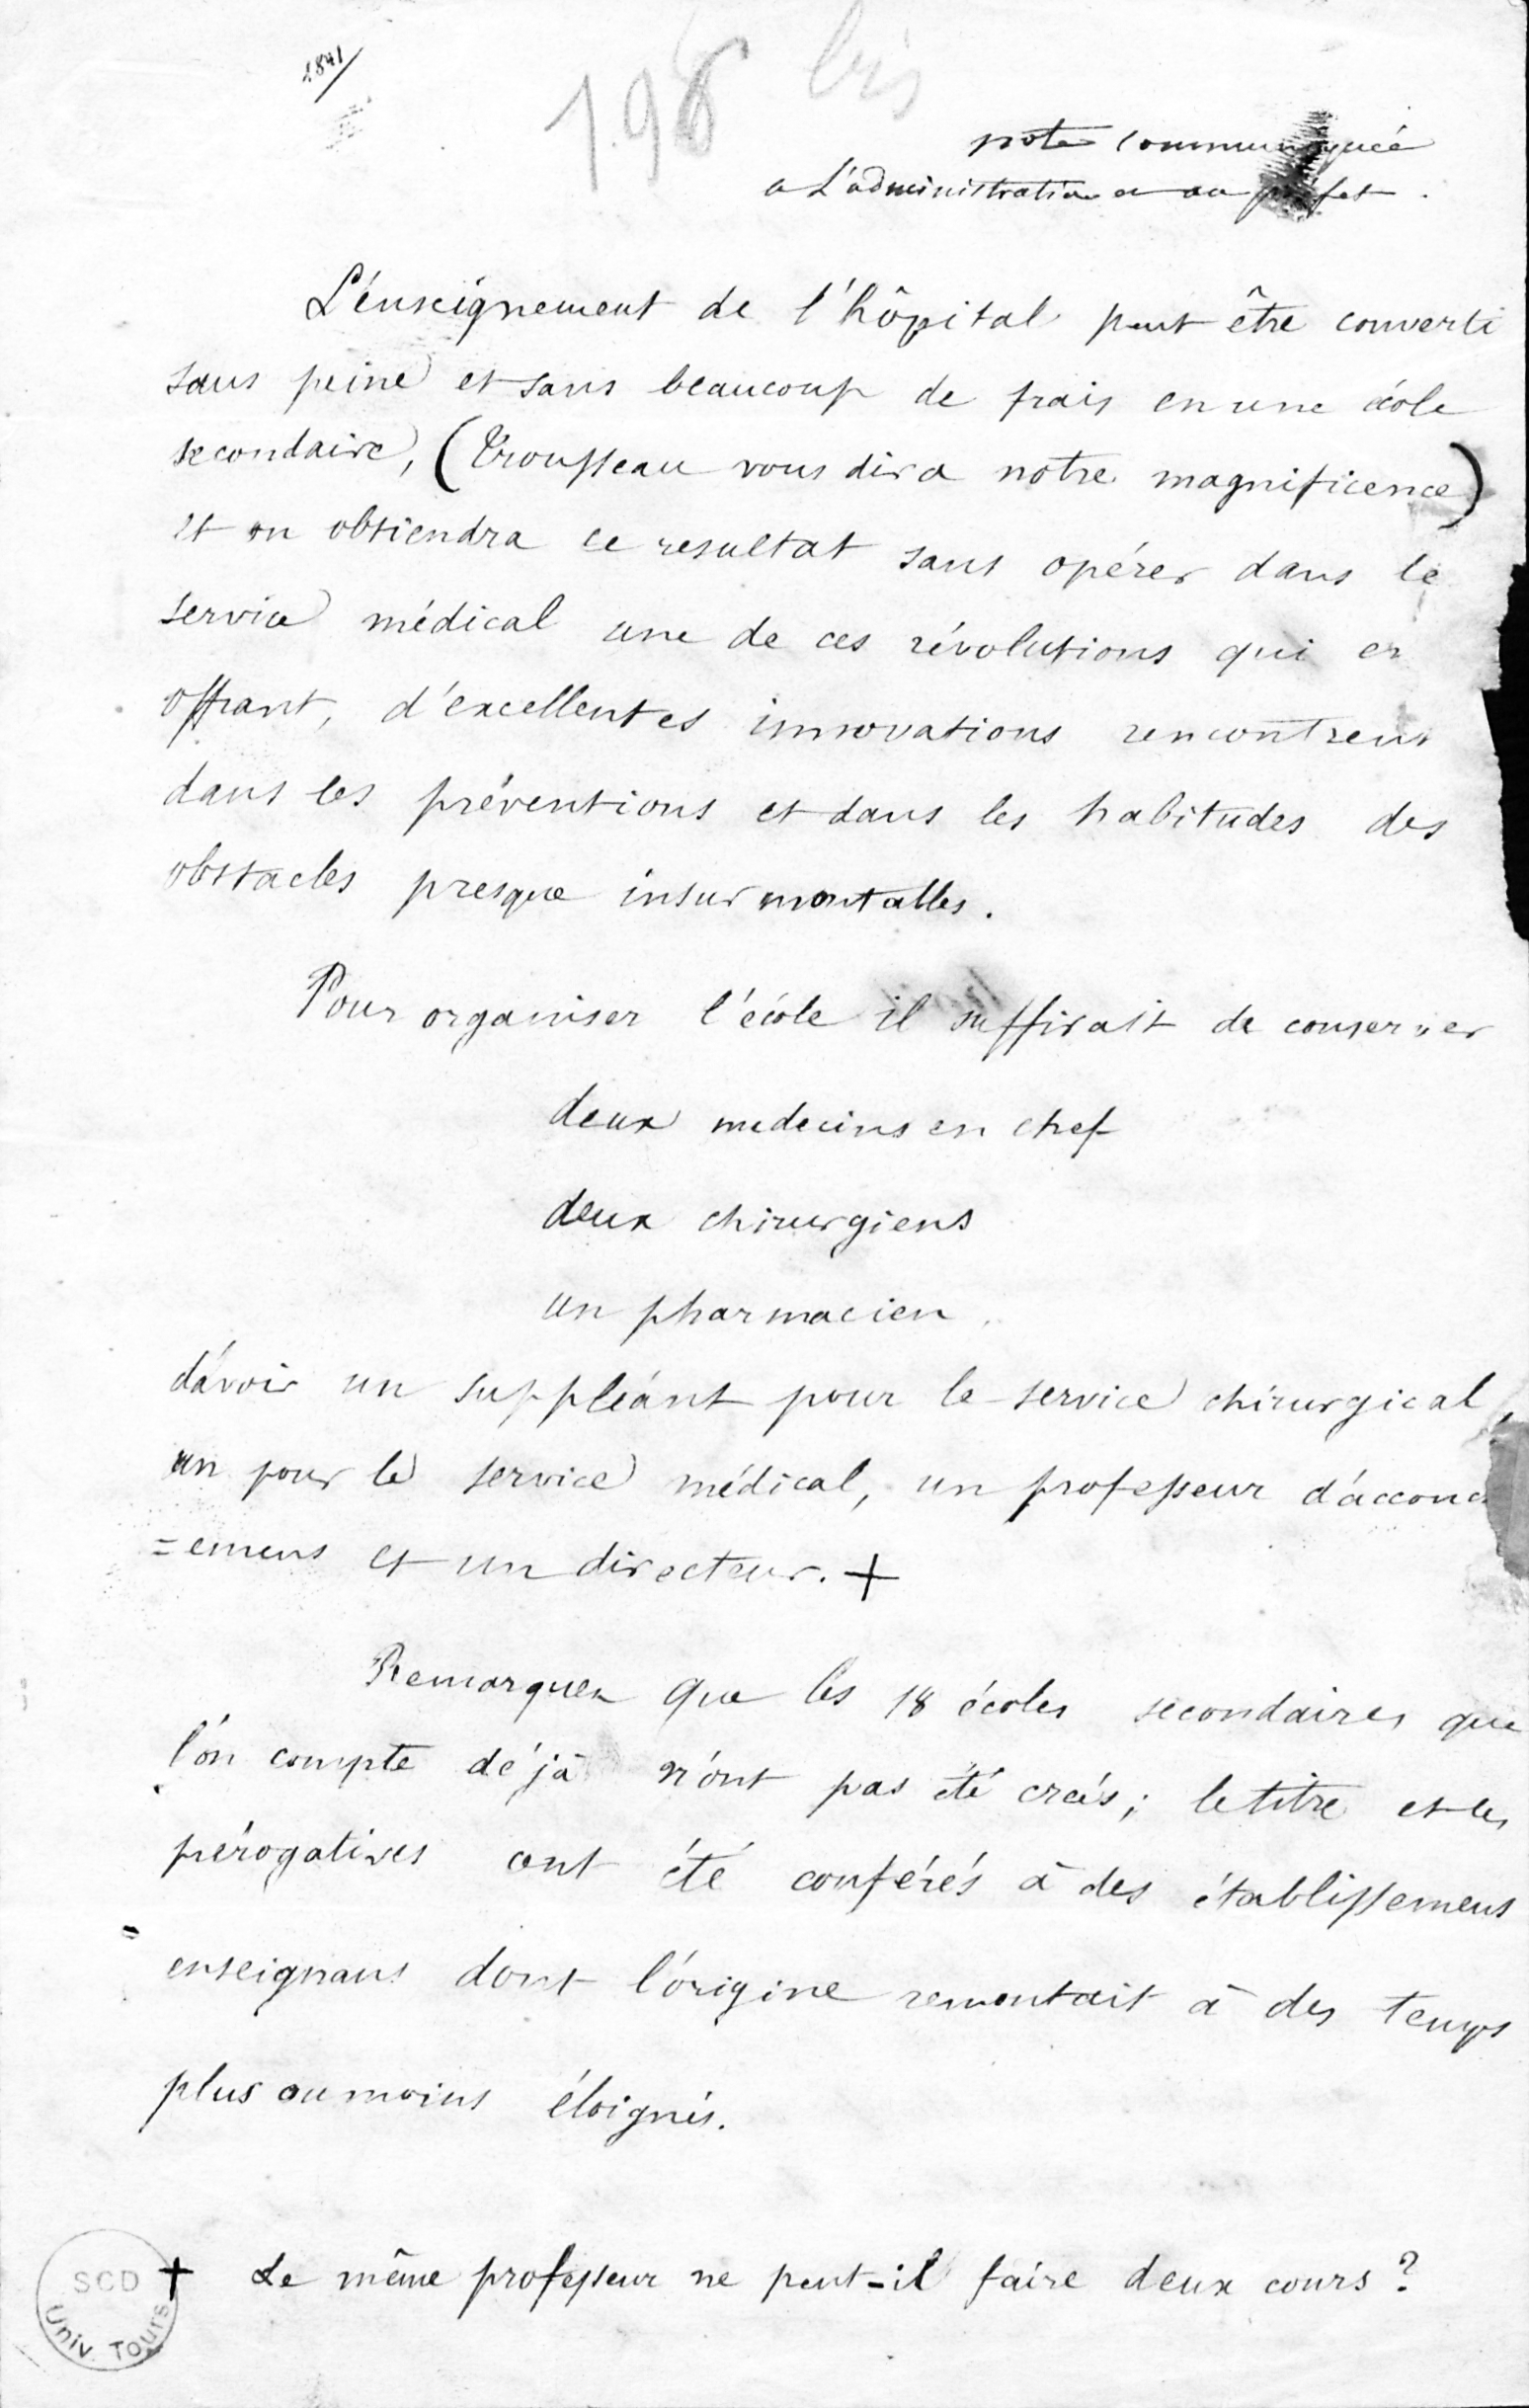 1841
198 bis
note communiquée
a L'administration et au préfet.
L'énseignement de l'hôpital peut être converti
sans peine et sans beaucoup de frais en une école
secondaire, (Trousseau vous dira notre magnificence)
et on obtiendra ce resultat sans opérer dans le
service médical une de ces révolutions qui en
offrant, d'excellentes innovations rencontrent
dans les préventions et dans les habitudes des
obstacles presque insurmontables.
Pour organiser l'école il suffirait de conserver
deux medecins en chef
deux chirurgiens
un pharmacien
d'avoir un suppléant pour le service chirurgical,
un pour le service médical, un professeur d'accouch
=emens et un directeur. +
Remarquez que les 18 écoles secondaires que
l'on compte déjà n'ont pas été créés; le titre et les
prérogatives ont été conférés à des établissemens
enseignans dont l'origine remontait à des temps
plus ou moins éloignés.
+ Le même professeur ne peut-il faire deux cours ?
SCD
Univ. Tours